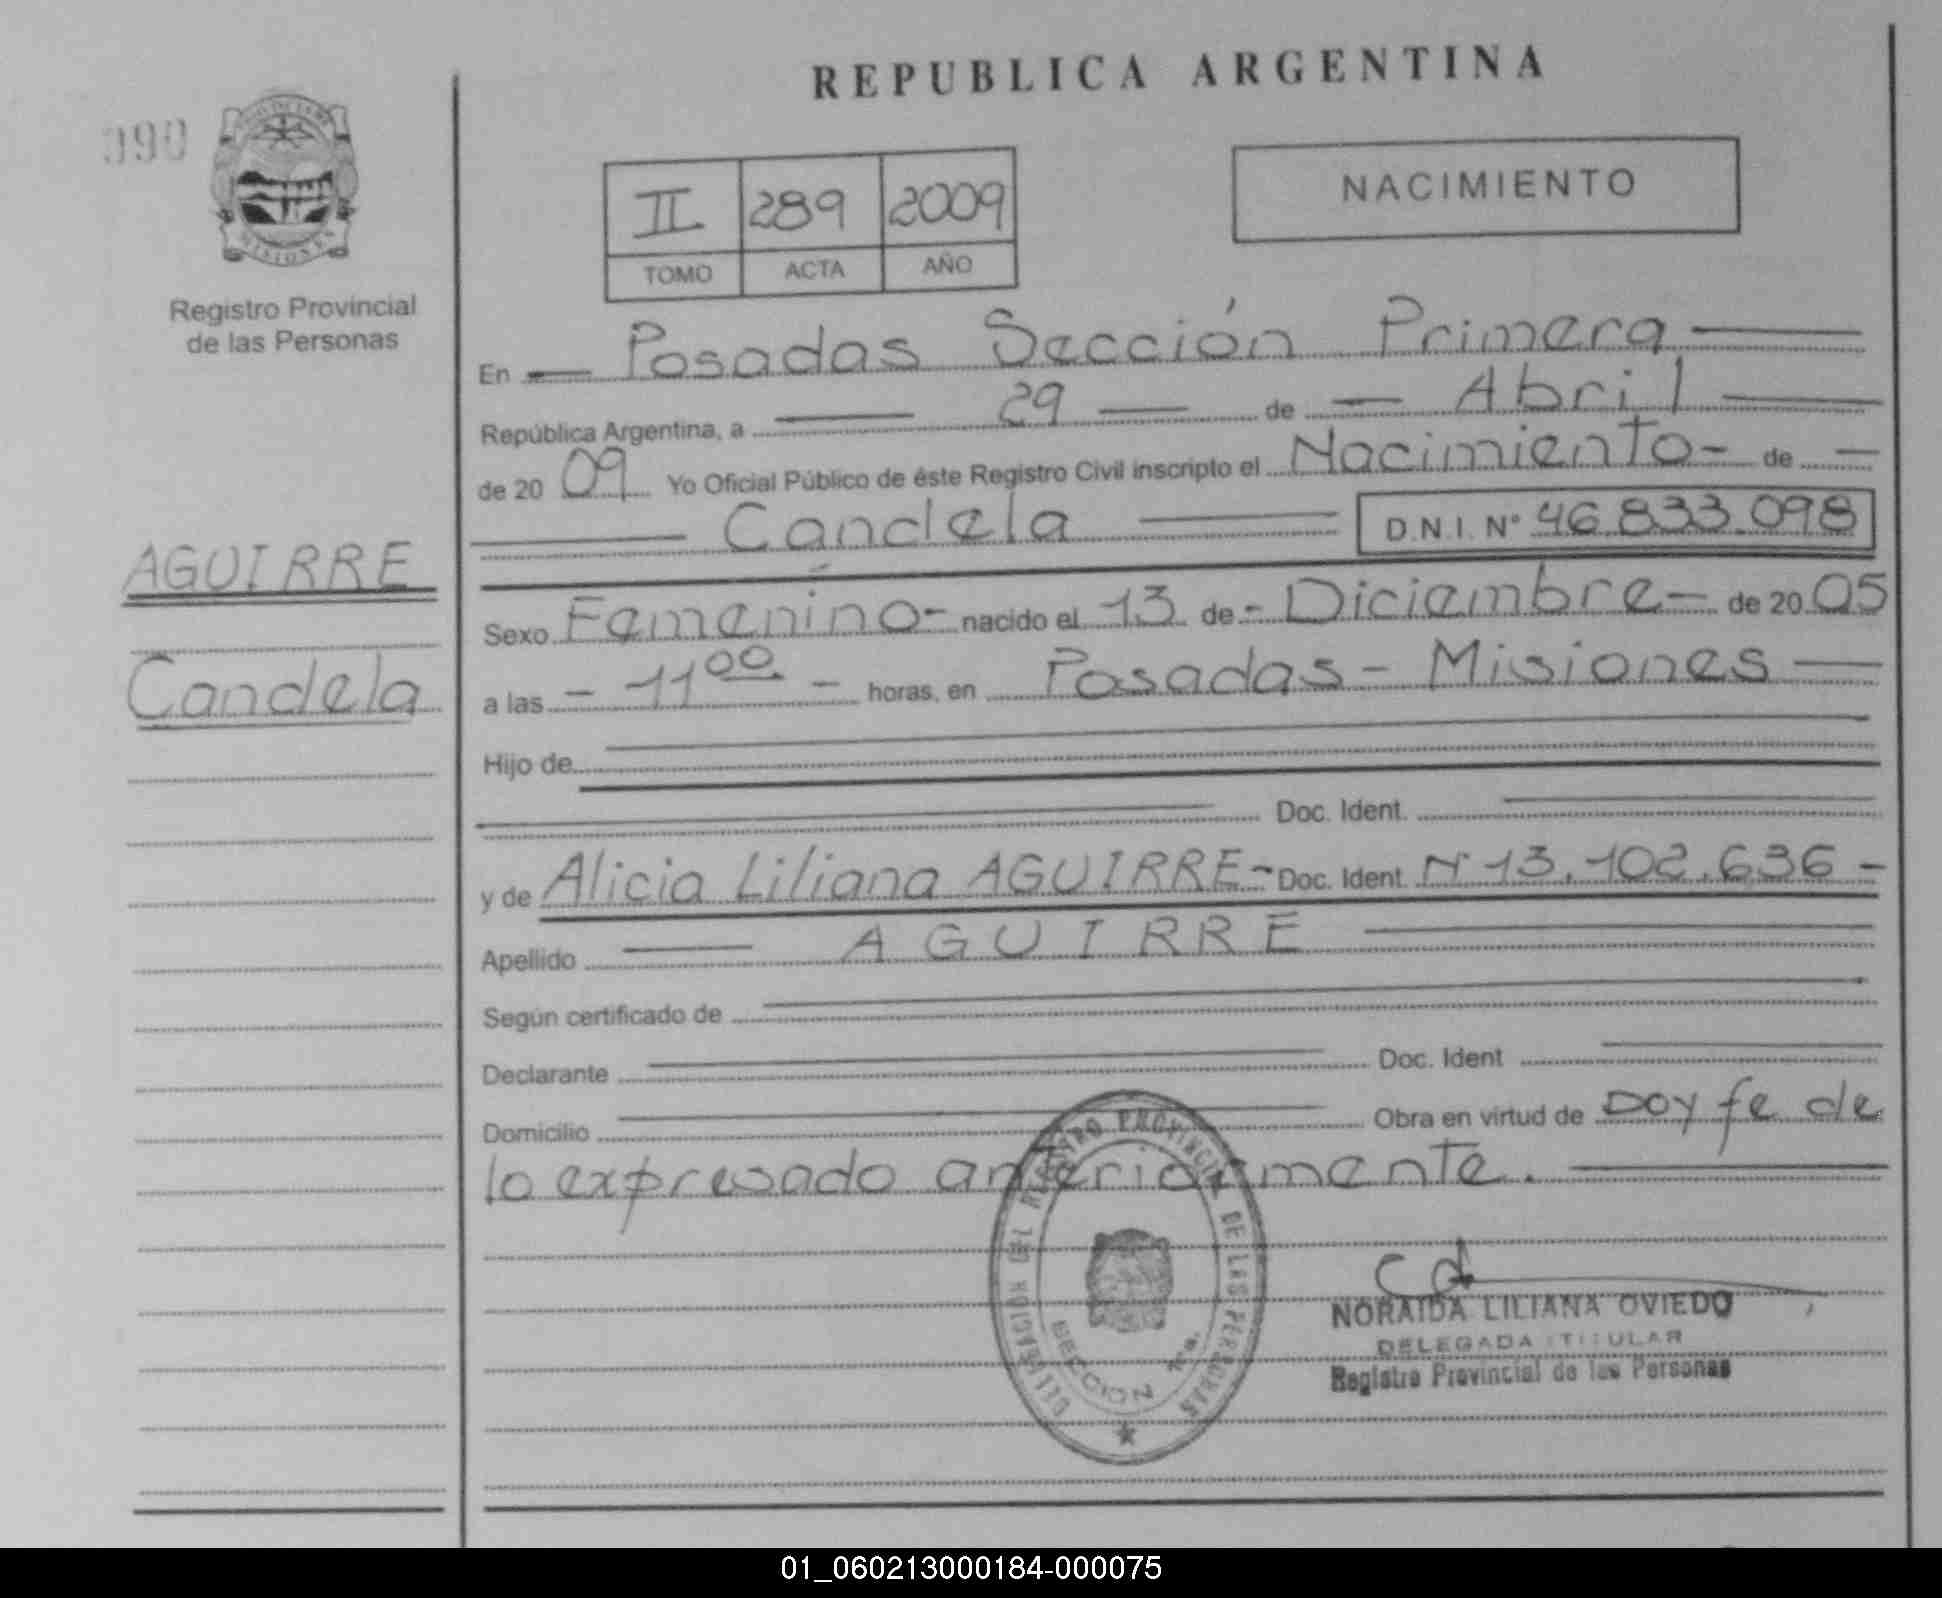 REPUBLICA ARGENTINA
090
PROVINCIA DE
MISIONES
Registro Provincial
de las Personas
II 289 2009
TOMO ACTA AÑO
NACIMIENTO
En Posadas Sección Primera
República Argentina, a 29 de Abril
de 20 09 Yo Oficial Público de éste Registro Civil inscripto el Nacimiento - de
Candela D.N.I. N° 46.833.098
AGUIRRE
Candela
Sexo Femenino - nacido el 13 de - Diciembre - de 20 05
a las - 11 00 - horas, en Posadas - Misiones
Hijo de
Doc. Ident.
y de Alicia Liliana AGUIRRE - Doc. Ident. N° 13.102.636 -
Apellido AGUIRRE
Según certificado de
Declarante Doc. Ident
Domicilio Obra en virtud de Doy fe de
lo expresado anteriormente.
DELEGACION DEL REGISTRO PROVINCIAL DE LAS PERSONAS
SECCION 1ra.
NORAIDA LILIANA OVIEDO
DELEGADA TITULAR
Registro Provincial de las Personas
01_060213000184-000075